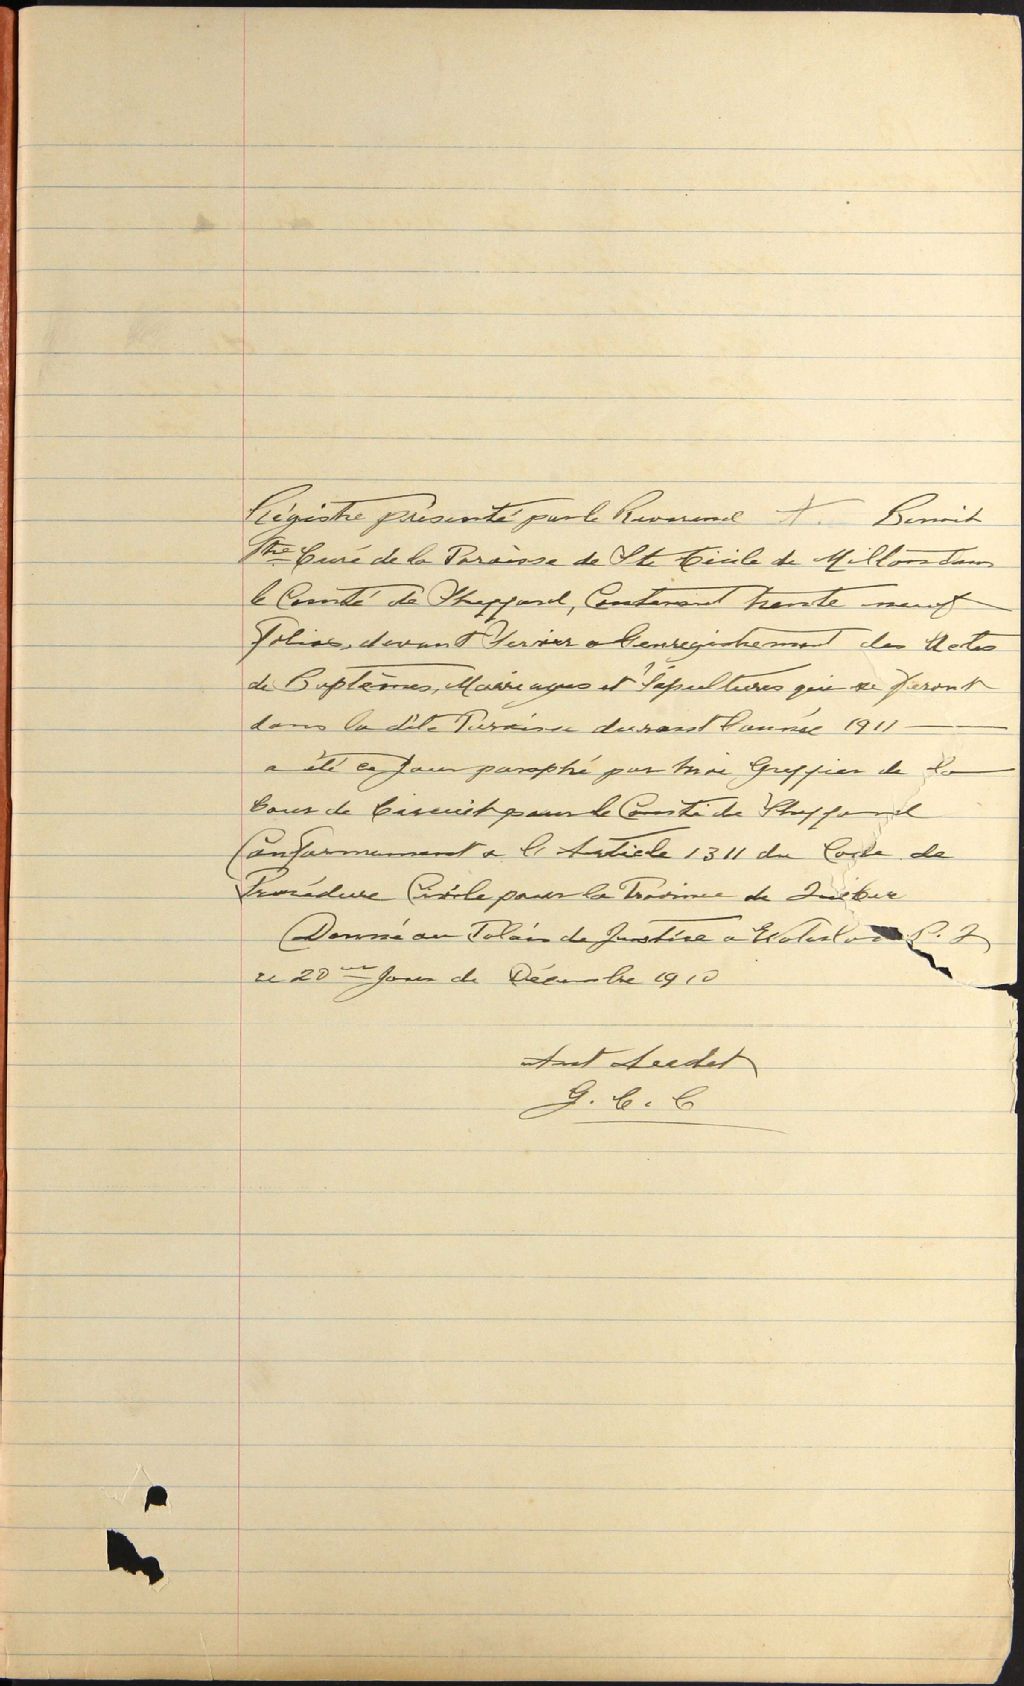 Régistre présenté par le Reverend A. Benoit
Ptre Curé de la Paroisse de Ste Cécile de Milton dans
le Comté de Shefford, Contenant trente neuf
Folios, devant Servir a l'enregistrement des Actes
de Baptêmes, Mariages et Sépultures qui se feront
dans la dite Paroisse durant l'année 1911
a été ce Jour paraphé par moi Greffier de la
Cour de Circuit pour le Comté de Shefford
Conformement a l'Article 1311 du Code de
Procédure Civile pour la Province de Québec
Donné au Palais de Justice a Waterloo P. Q
ce 20me Jour de Décembre 1910
G. C. C